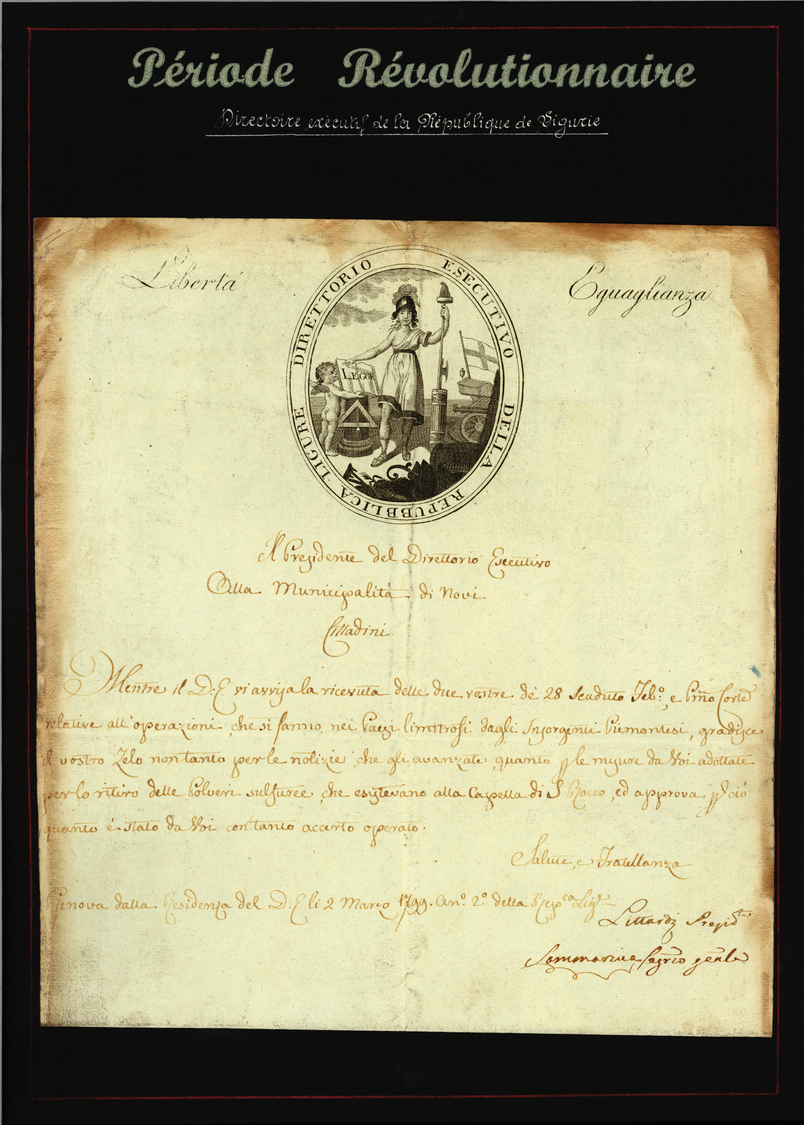 Période Révolutionnaire
Directoire exécutif de la République de Ligurie
Libertá
Eguaglianza
DIRETTORIO ESECUTIVO DELLA REPUBBLICA LIGURE
LEGGE
Il Presidente del Direttorio Esecutivo
Alla Municipalità di Novi
Cittadini
Mentre il D: E vi avvisa la ricevuta delle due vostre de 28 scaduto Feb.º, e Pmo Corte
relative all'operazioni, che si fanno nei Paesi limitrofi dagli Insorgenti Piemontesi, gradisce
il vostro Zelo non tanto per le notizie, che gli avanzate, quanto p le misure da Voi adottate
per lo ritiro delle Polveri sulfuree, che esistevano alla Capella di S Rocco, ed approva p ciò
quanto è stato da Voi con tanto accerto operato.
Salute, e Fratellanza
Genova dalla Residenza del D: E li 2 Marzo 1799. An.º 2.º della Rep.ca Lig.e
Littardi Presid.te
Sommariva Segrio genle